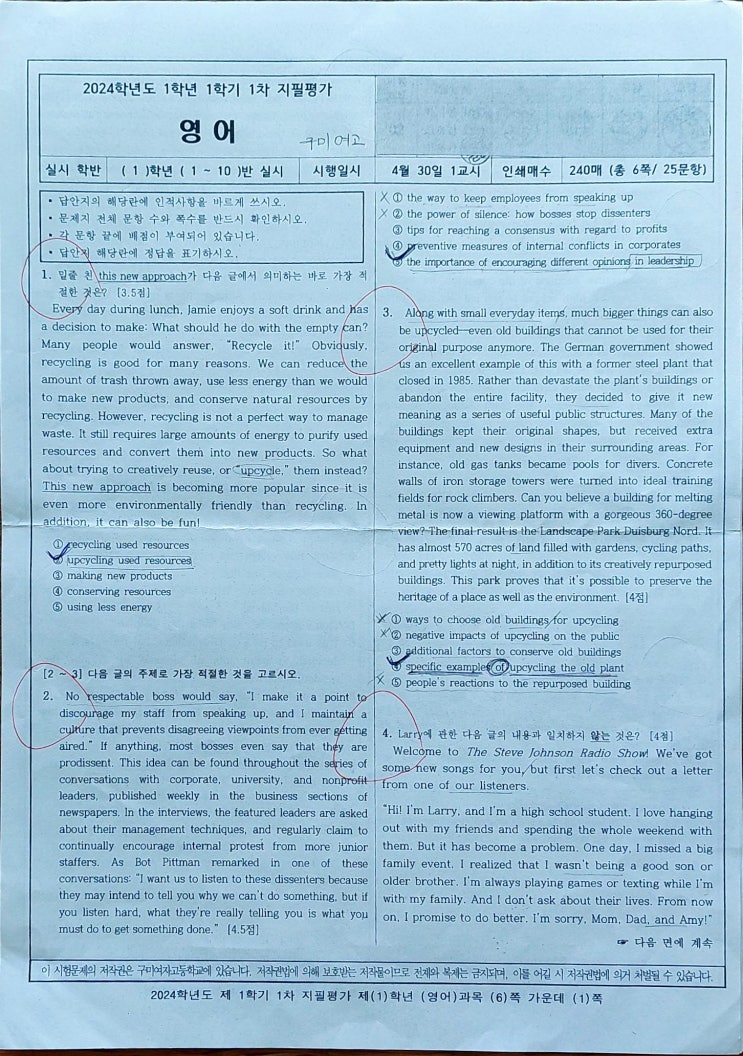 2024학년도 1학년 1학기 1차 지필평가
영어
구미여고
실시 학반 ( 1 )학년 ( 1 ~ 10 )반 실시 시행일시 4월 30일 1교시 인쇄매수 240매 (총 6쪽/ 25문항)
• 답안지의 해당란에 인적사항을 바르게 쓰시오.
• 문제지 전체 문항 수와 쪽수를 반드시 확인하시오.
• 각 문항 끝에 배점이 부여되어 있습니다.
• 답안지 해당란에 정답을 표기하시오.
1. 밑줄 친 this new approach가 다음 글에서 의미하는 바로 가장 적
절한 것은? [3.5점]
Every day during lunch, Jamie enjoys a soft drink and has
a decision to make: What should he do with the empty can?
Many people would answer, "Recycle it!" Obviously,
recycling is good for many reasons. We can reduce the
amount of trash thrown away, use less energy than we would
to make new products, and conserve natural resources by
recycling. However, recycling is not a perfect way to manage
waste. It still requires large amounts of energy to purify used
resources and convert them into new products. So what
about trying to creatively reuse, or "upcycle," them instead?
This new approach is becoming more popular since it is
even more environmentally friendly than recycling. In
addition, it can also be fun!
① recycling used resources
② upcycling used resources
③ making new products
④ conserving resources
⑤ using less energy
[2 ~ 3] 다음 글의 주제로 가장 적절한 것을 고르시오.
2. No respectable boss would say, "I make it a point to
discourage my staff from speaking up, and I maintain a
culture that prevents disagreeing viewpoints from ever getting
aired." If anything, most bosses even say that they are
prodissent. This idea can be found throughout the series of
conversations with corporate, university, and nonprofit
leaders, published weekly in the business sections of
newspapers. In the interviews, the featured leaders are asked
about their management techniques, and regularly claim to
continually encourage internal protest from more junior
staffers. As Bot Pittman remarked in one of these
conversations: "I want us to listen to these dissenters because
they may intend to tell you why we can't do something, but if
you listen hard, what they're really telling you is what you
must do to get something done." [4.5점]
① the way to keep employees from speaking up
② the power of silence: how bosses stop dissenters
③ tips for reaching a consensus with regard to profits
④ preventive measures of internal conflicts in corporates
⑤ the importance of encouraging different opinions in leadership
3. Along with small everyday items, much bigger things can also
be upcycled—even old buildings that cannot be used for their
original purpose anymore. The German government showed
us an excellent example of this with a former steel plant that
closed in 1985. Rather than devastate the plant's buildings or
abandon the entire facility, they decided to give it new
meaning as a series of useful public structures. Many of the
buildings kept their original shapes, but received extra
equipment and new designs in their surrounding areas. For
instance, old gas tanks became pools for divers. Concrete
walls of iron storage towers were turned into ideal training
fields for rock climbers. Can you believe a building for melting
metal is now a viewing platform with a gorgeous 360-degree
view? The final result is the Landscape Park Duisburg Nord. It
has almost 570 acres of land filled with gardens, cycling paths,
and pretty lights at night, in addition to its creatively repurposed
buildings. This park proves that it's possible to preserve the
heritage of a place as well as the environment. [4점]
① ways to choose old buildings for upcycling
② negative impacts of upcycling on the public
③ additional factors to conserve old buildings
④ specific examples of upcycling the old plant
⑤ people's reactions to the repurposed building
4. Larry에 관한 다음 글의 내용과 일치하지 않는 것은? [4점]
Welcome to The Steve Johnson Radio Show! We've got
some new songs for you, but first let's check out a letter
from one of our listeners.
"Hi! I'm Larry, and I'm a high school student. I love hanging
out with my friends and spending the whole weekend with
them. But it has become a problem. One day, I missed a big
family event. I realized that I wasn't being a good son or
older brother. I'm always playing games or texting while I'm
with my family. And I don't ask about their lives. From now
on, I promise to do better. I'm sorry, Mom, Dad, and Amy!"
☞ 다음 면에 계속
이 시험문제의 저작권은 구미여자고등학교에 있습니다. 저작권법에 의해 보호받는 저작물이므로 전재와 복제는 금지되며, 이를 어길 시 저작권법에 의거 처벌될 수 있습니다.
2024학년도 제 1학기 1차 지필평가 제(1)학년 (영어)과목 (6)쪽 가운데 (1)쪽